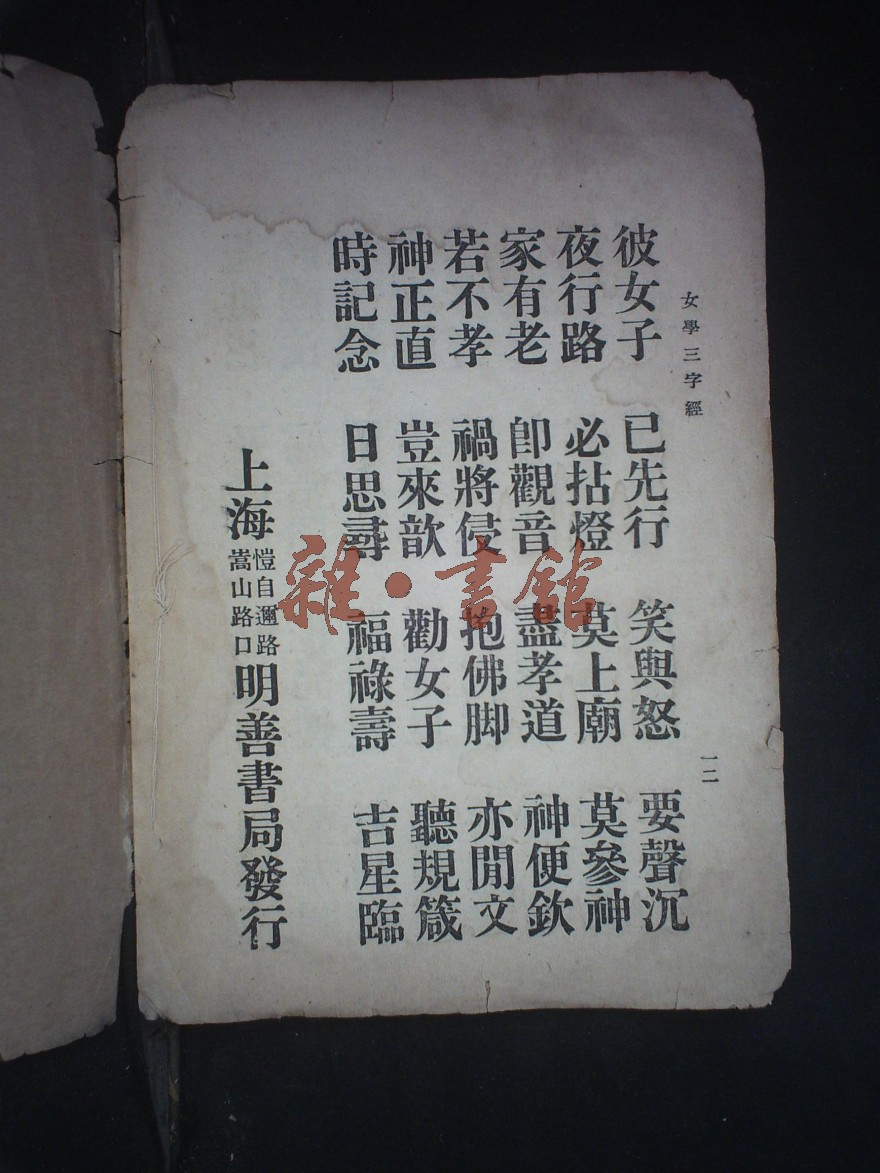 女學三字經
一二
彼女子 已先行 笑與怒 要聲沉
夜行路 必拈燈 莫上廟 莫參神
家有老 卽觀音 盡孝道 神便欽
若不孝 禍將侵 抱佛脚 亦閒文
神正直 豈來歆 勸女子 聽規箴
時記念 日思尋 福祿壽 吉星臨
上海愷自邇路嵩山路口明善書局發行
雜·書館